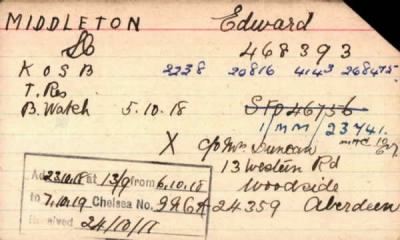 MIDDLETON Edward
468393
K O S B 2238 20816 4143 268475.
T. Res
B. Watch 5.10.18 S/P 46756
1/MM/23741.
X c/o Mrs Duncan
13 Western Rd
Woodside
24359 Aberdeen
Ad 23.10.18 at 13/9 from 6.10.18
to 7.10.19 Chelsea No. 996A
Received 24/10/18